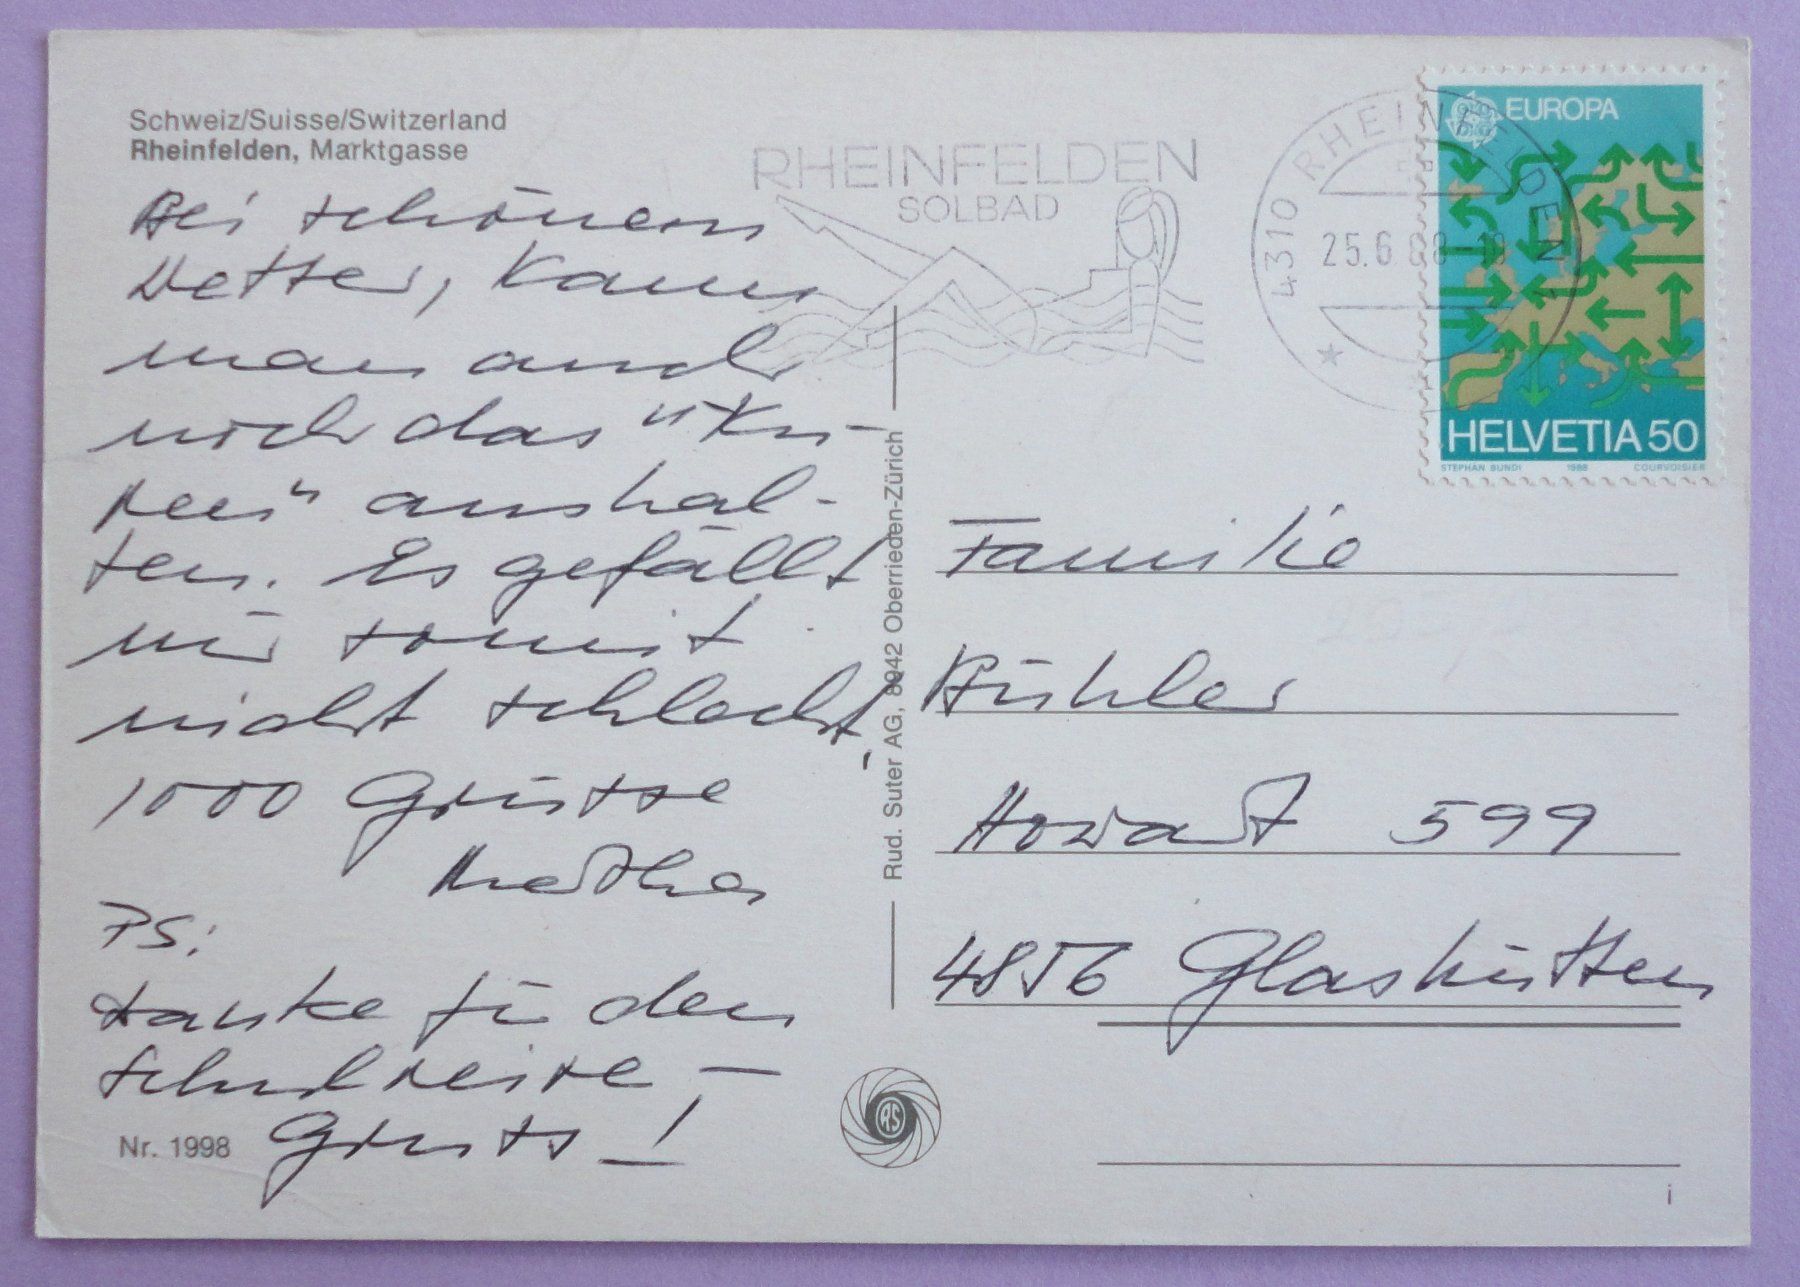 Schweiz/Suisse/Switzerland
Rheinfelden, Marktgasse
Bei schönem
Wetter, kann
man auch
noch das "Ku-
ren" aushal-
ten. Es gefällt
mir somit
nicht schlecht,
1000 Grüsse
PS:
Danke für den
Schulreise –
Gruss!
Nr. 1998
RHEINFELDEN
SOLBAD
4310 RHEINFELDEN 1
25.6.88-18
EUROPA
HELVETIA 50
STEPHAN BUNDI 1988 COURVOISIER
Rud. Suter AG, 8942 Oberrieden-Zürich
Familie
Bühler
599
4856 Glashütten
RS
i